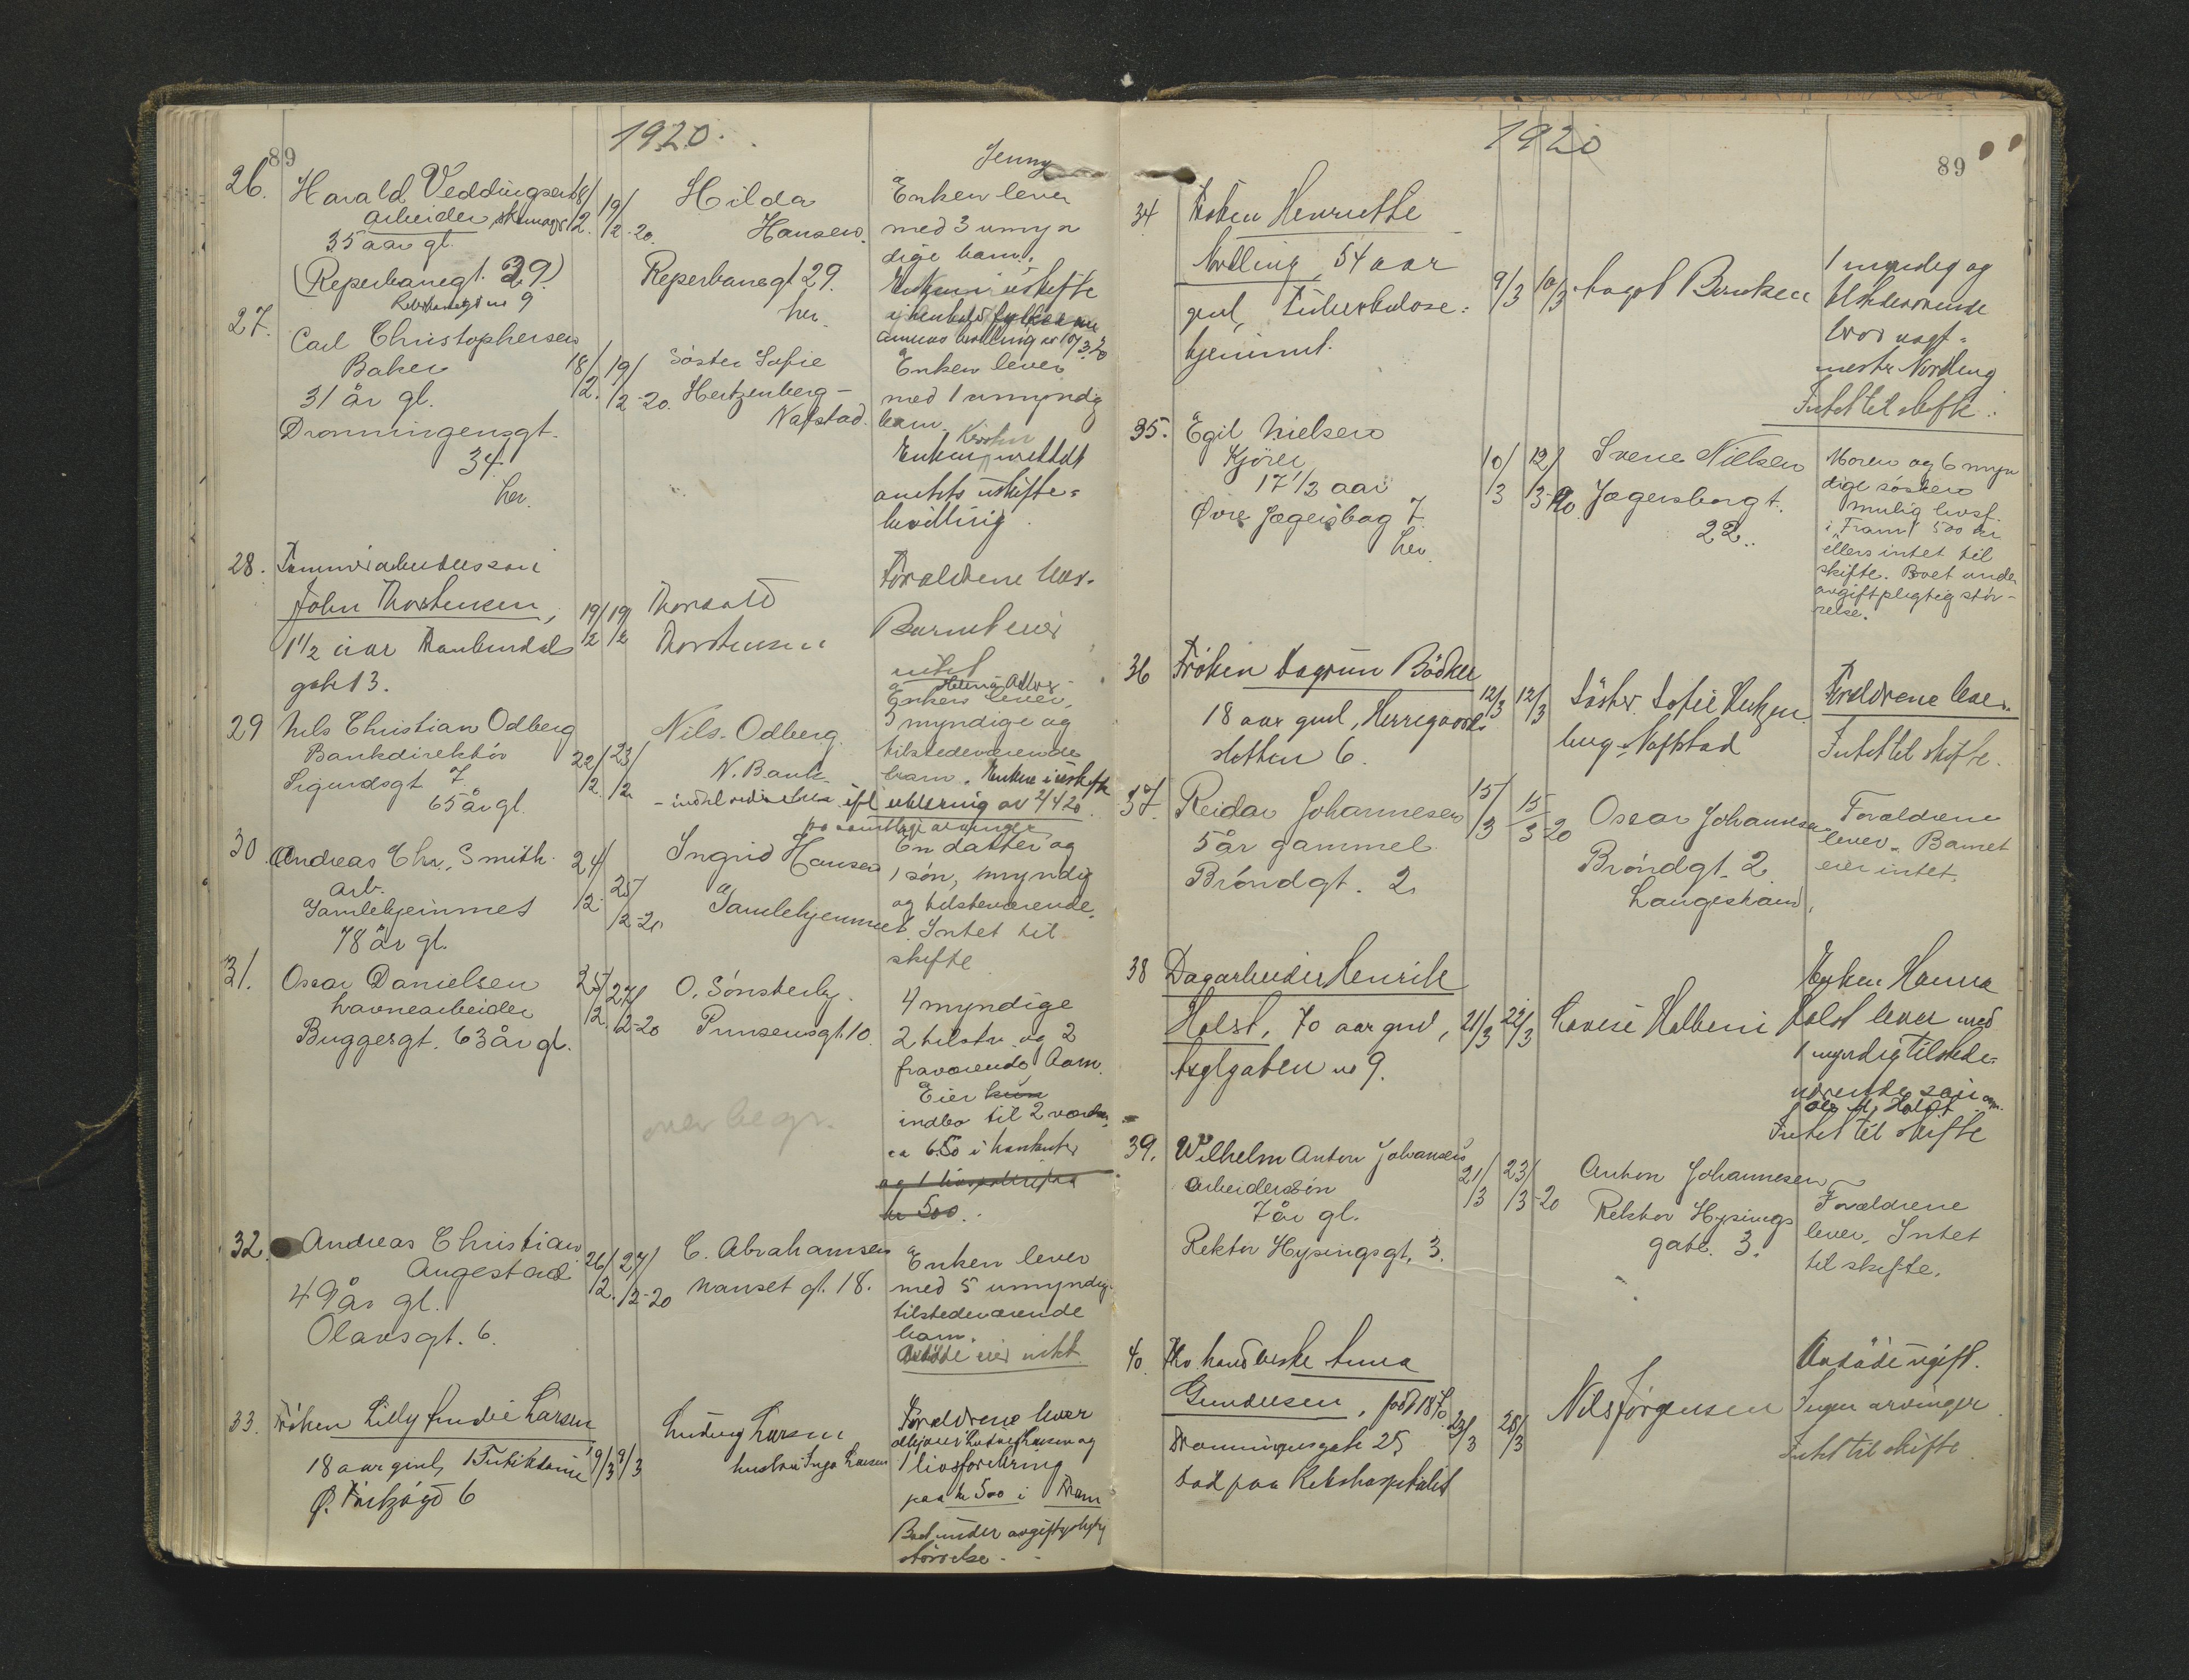 89
1920.
26.
Harald Veddingsen
arbeider skomager
35 aar gl.
(Reperbanegt. 29)
18/2. 19/2-20.
Hilda
Hansen.
Reperbanegt 29.
her.
Jenny
Enken lever
med 3 umyn
dige barn.
Enken i uskifte
i henhold
bevilling av 10/3 20
27.
Carl Christophersen
Baker
31 år gl.
Dronningensgt.
34
her.
18/2. 19/2-20.
Söster Sofie
Hertzenberg-
Nafstad.
Enken lever
med 1 umyndig
barn.
Enken
uskifte=
bevilling.
28.
John Thorstensen,
1 1/2 aar
gate 13.
19/2 19/2
Thorvald
Thorstensen
Foreldrene lever.
Barnet eier
intet
29
Nils Christian Odberg
Bankdirektör
Sigurdsgt 7
65 år gl.
22/2. 23/2
Nils. Odberg.
N. Bank.
Enken lever,
3 myndige og
tilstedeværende
barn. Enken i uskifte
ifl. erklering av 2/4 20.
30.
Andreas Chr. Smith.
arb.
Gamlehjemmet
78 år gl.
24/2. 25/2-20
Ingrid Hansen
Gamlehjemmet.
En datter og
1 sön, myndig
og tilsteværende.
Intet til
skifte
31.
Oscar Danielsen
havnearbeider
Buggegt. 63 år gl.
25/2. 27/2-20
O. Sönsterby.
Prinsensgt. 10.
over begr.
4 myndige
2 tilstv. og 2
fraværende barn.
Eier kun
indbo til 2 værelser,
ca 650 i kontanter
kr 500.
32.
Andreas Christian
Angestad
49 år gl.
Olavsgt. 6.
26/2. 27/2-20
C. Abrahamsen
Nanset gt. 18.
Enken lever
med 5 umyndig.
tilstedeværende
barn.
Avdöde eier intet.
33.
Fröken Lilly Larsen
18 aar gml,
Ø. 6
9/3 9/3
Ludvig Larsen
Inga Larsen
Foreldrene lever
1 livsforsikring
paa kr 500 i Fram
Boet under avgiftspligtig
störrelse.
1920
89
34
Fröken Henriette
Nordling, 54 aar
gml, Tuberkulose=
hjemmet.
9/3 10/3
Aagot Berntsen
1 myndig og
tilstedeværende
bror vagt=
mester Nordling
Intet til skifte.
35.
Egil Nielsen
Kjörer
17 1/2 aar
Øvre Jægersborg 7.
her
10/3 12/3-20.
Svene Nielsen
Jægersborgt.
22.
Moren og 6 myn
dige söstre
Mulig livsf.
i "Fram" 500 kr
ellers intet til
skifte. Boet under
avgiftpligtig stör-
relse.
36
Fröken Dagrun Bödker
18 aar gml, Herregaards
sletten 6.
12/3 12/3
Söster Sofie Hertzen
berg-Nafstad
Foreldrene lever.
Intet til skifte.
37.
Reidar Johannesen
5 år gammel
Bröndgt. 2
15/3 15/3-20
Oscar Johannesen
Bröndgt. 2.
Langestrand.
Forældrene
lever. Barnet
eier intet.
38
Dagarbeider Henrik
Holst, 70 aar gml,
Asylgaten no 9.
21/3 22/3
Lovise Halben
Enken Hanna
Holst lever med
1 myndig tilstede=
værende sön
Intet til skifte
39.
Wilhelm Anton Johansen
arbeidersön
7 år gl.
Rektor Hysingsgt. 3.
21/3 23/3-20
Anton Johannesen
Rektor Hysings
gate. 3.
Forældrene
lever, Intet
til skifte.
40.
Anna
Gundersen, född 1870.
Dronningensgate 25
död paa Rikshospitalet
23/3 28/3
Nils Jörgensen
Avdöde ugift.
Ingen arvinger
Intet til skifte.